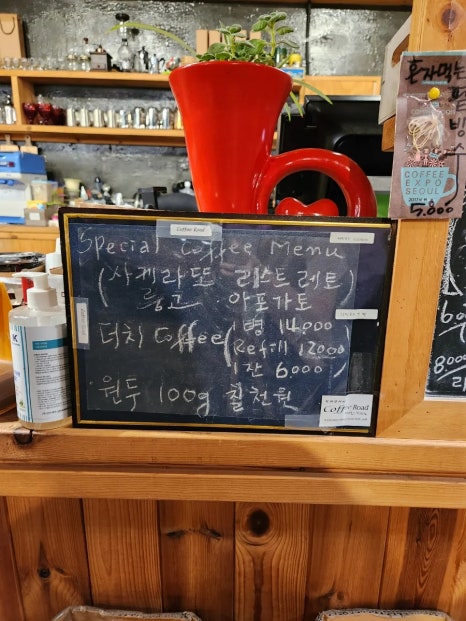 혼자먹는
팥
빙
COFFEE
EXPO
SEOUL
5.000
Coffee Road
Special Coffee Menu
(샤케라또 리스트레토)
룽고 · 아포가토
더치 Coffee (1병 14.000
Refill 12000
1잔 6.000)
· 원두 100g 칠천원
Coffee Road